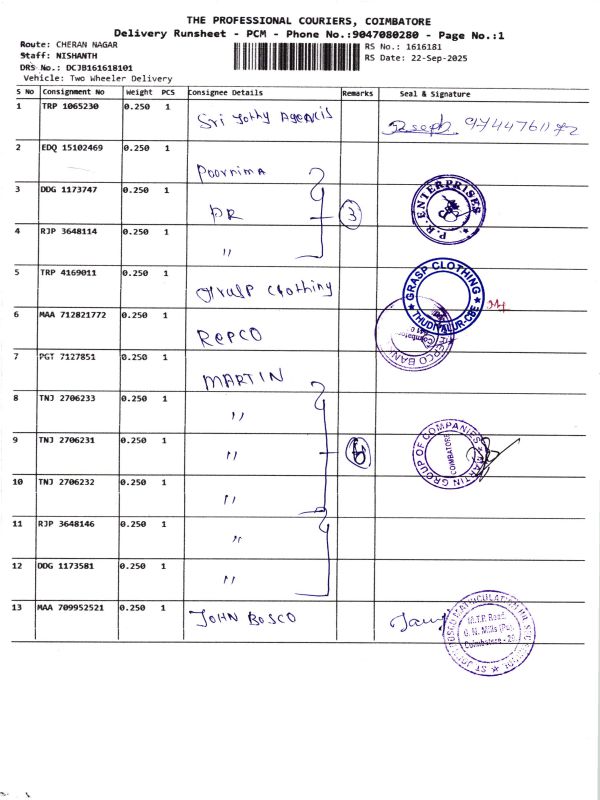 THE PROFESSIONAL COURIERS, COIMBATORE
Delivery Runsheet - PCM - Phone No.:9047080280 - Page No.:1
Route: CHERAN NAGAR
Staff: NISHANTH
DRS No.: DCJB161618101
Vehicle: Two Wheeler Delivery
RS No.: 1616181
RS Date: 22-Sep-2025
S No Consignment No Weight PCS Consignee Details Remarks Seal & Signature
1 TRP 1065230 0.250 1 Sri Agencis
2 EDQ 15102469 0.250 1 Poornima
3 DDG 1173747 0.250 1 PR 3 P.R. ENTERPRISES CBE
4 RJP 3648114 0.250 1 "
5 TRP 4169011 0.250 1 Grasp Clothing GRASP CLOTHING THUDIYALUR-CBE
6 MAA 712821772 0.250 1 REPCO REPCO BANK Coimbatore
7 PGT 7127851 0.250 1 MARTIN
8 TNJ 2706233 0.250 1 "
9 TNJ 2706231 0.250 1 " MARTIN GROUP OF COMPANIES COIMBATORE
10 TNJ 2706232 0.250 1 "
11 RJP 3648146 0.250 1 "
12 DDG 1173581 0.250 1 "
13 MAA 709952521 0.250 1 JOHN BOSCO
M.T.P. Road,
G. N. Mills (Po),
Coimbatore - 29